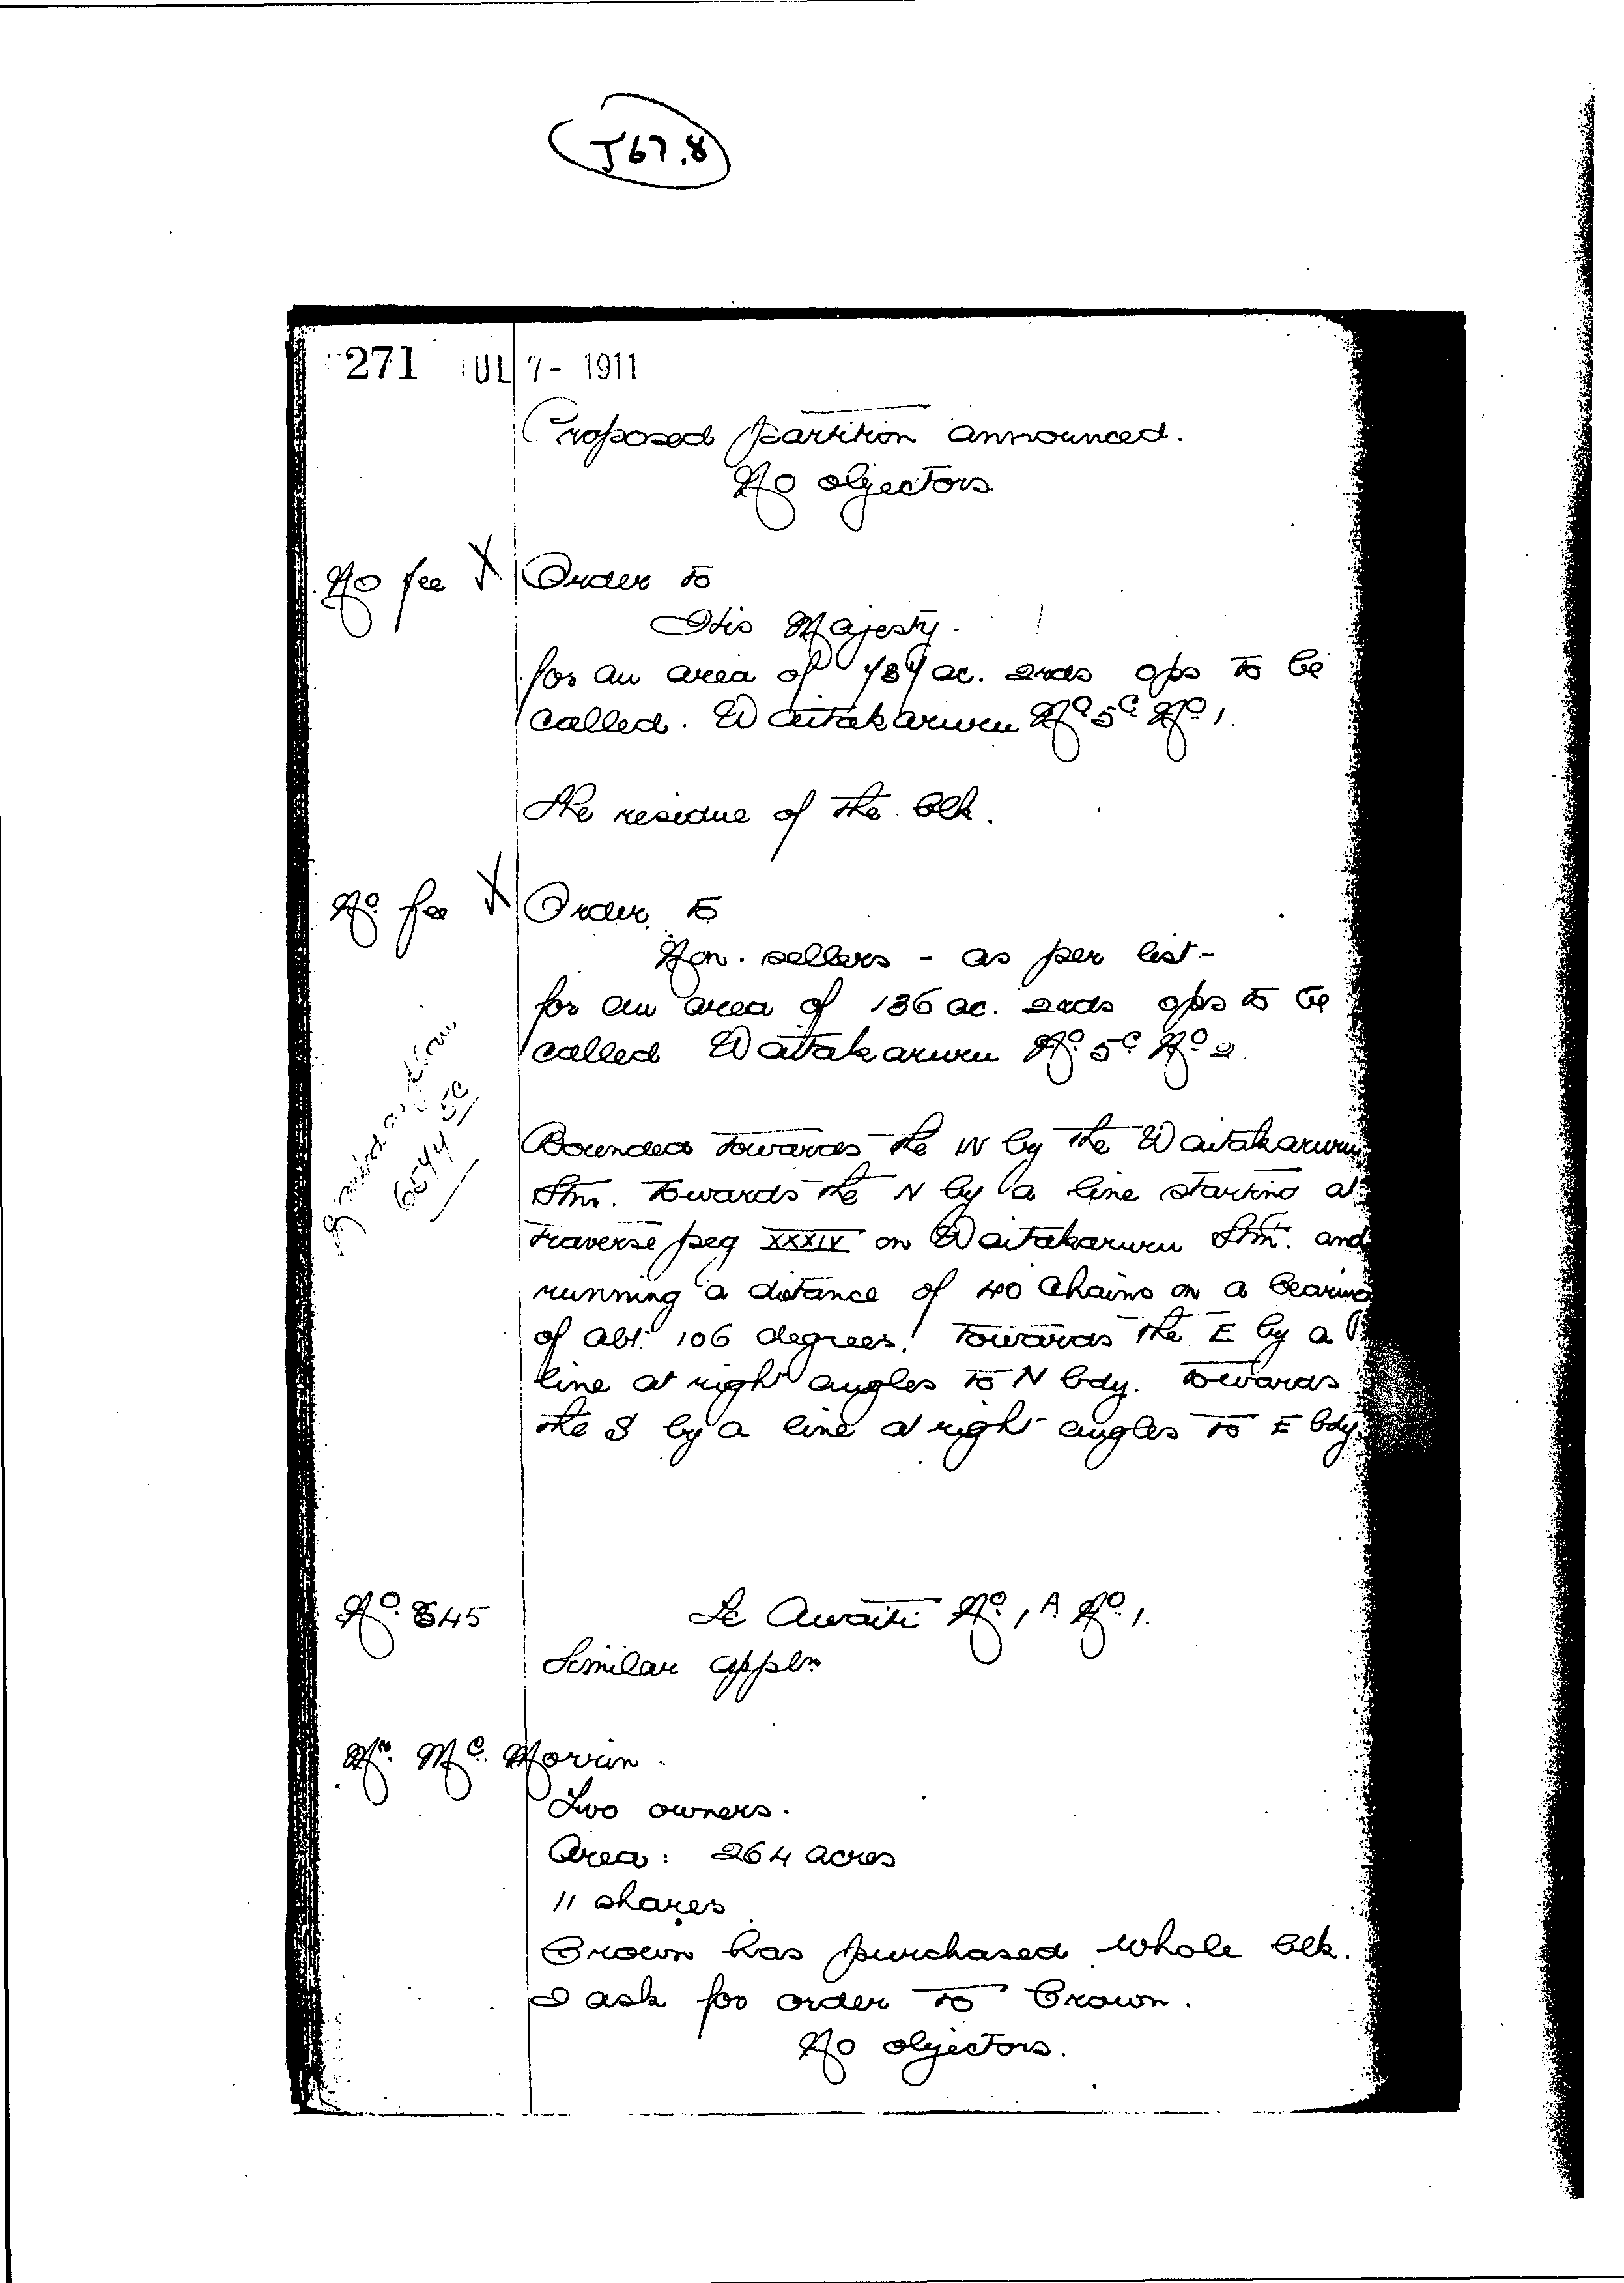 J67.8
271 JUL 7- 1911
Proposed partition announced.
No objectors
No fee X Order to
His Majesty.
for an area of 484 ac. 2rds 0ps to be
called. Waitakaruru No 5C No 1.
The residue of the blk.
No. fee X Order to
Non. sellers - as per list -
for an area of 136 ac. 2rds 0ps to be
called Waitakaruru No. 5C No 2.
6544 5C
Bounded towards the W by the Waitakaruru
Stm. Towards the N by a line starting at
Traverse peg XXXIV on Waitakaruru Stm. and
running a distance of 40 Chains on a bearing
of abt. 106 degrees. Towards the E by a
line at right angles to N bdy. Towards
the S by a line at right angles to E bdy.
No. 845 Te Awaiti No. 1A No. 1.
Similar appln
Mr. McMorrin.
Two owners.
Area: 264 acres
11 shares
Crown has purchased whole blk.
I ask for order to Crown.
No objectors.